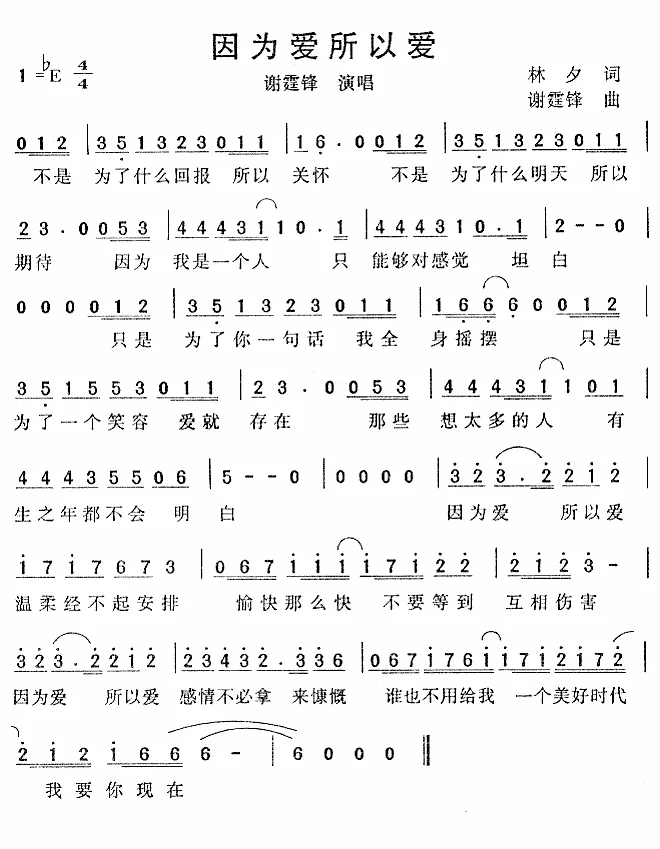 因为爱所以爱
1=♭E 4/4
谢霆锋 演唱
林夕 词
谢霆锋 曲
0 1 2 | 3 5 1 3 2 3 0 1 1 | 1 6 · 0 0 1 2 | 3 5 1 3 2 3 0 1 1 |
不是 为了什么回报 所以 关怀 不是 为了什么明天 所以
2 3 · 0 0 5 3 | 4 4 4 3 1 1 0 · 1 | 4 4 4 3 1 0 · 1 | 2 - - 0 |
期待 因为 我是一个人 只 能够对感觉 坦白
0 0 0 0 1 2 | 3 5 1 3 2 3 0 1 1 | 1 6 6 6 0 0 1 2 |
只是 为了你一句话 我全 身摇摆 只是
3 5 1 5 5 3 0 1 1 | 2 3 · 0 0 5 3 | 4 4 4 3 1 1 0 1 |
为了一个笑容 爱就 存在 那些 想太多的人 有
4 4 4 3 5 5 0 6 | 5 - - 0 | 0 0 0 0 | 3 2 3 · 2 2 1 2 |
生之年都不会 明白 因为爱 所以爱
1 7 1 7 6 7 3 | 0 6 7 1 1 1 1 7 1 2 2 | 2 1 2 3 - |
温柔经不起安排 愉快那么快 不要等到 互相伤害
3 2 3 · 2 2 1 2 | 2 3 4 3 2 · 3 3 6 | 0 6 7 1 7 6 1 1 7 1 2 1 7 2 |
因为爱 所以爱 感情不必拿 来慷慨 谁也不用给我 一个美好时代
2 1 2 1 6 6 6 - | 6 0 0 0 ‖
我要你现在